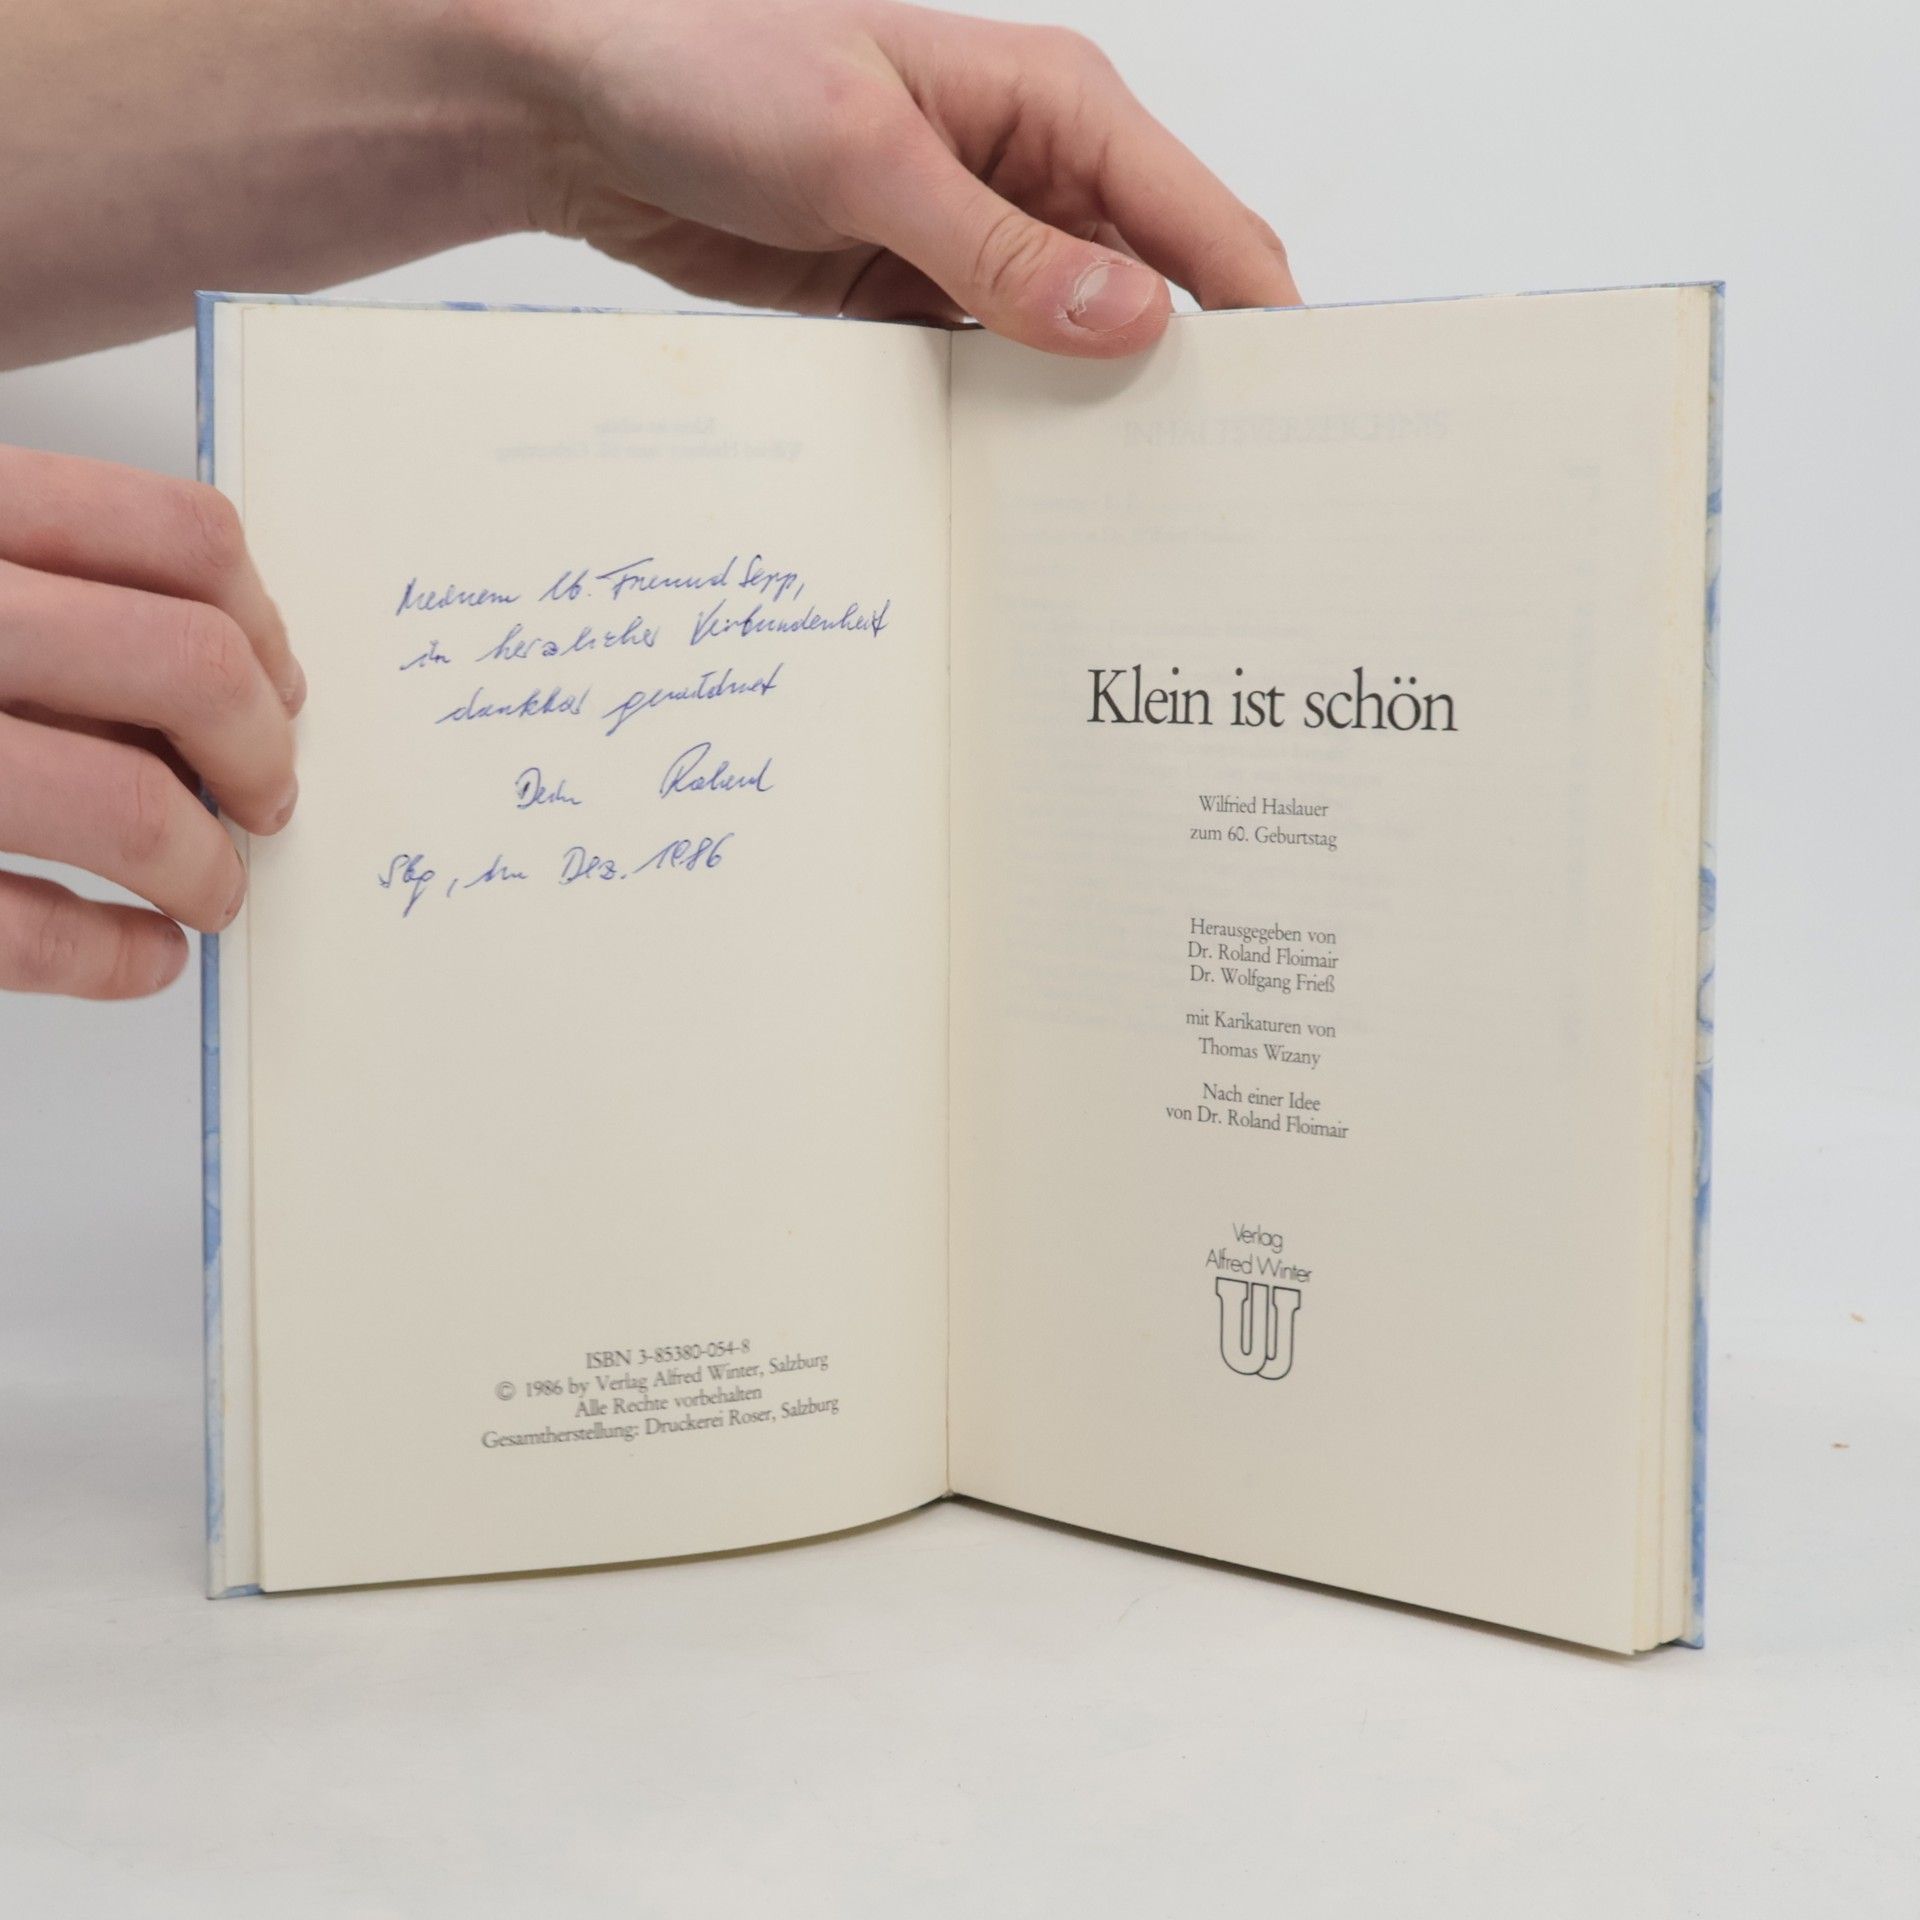 Meinem lb. Freund Sepp,
in herzlicher Verbundenheit
dankbar gewidmet
Dein Roland
Sbg, im Dez. 1986
ISBN 3-85380-054-8
© 1986 by Verlag Alfred Winter, Salzburg
Alle Rechte vorbehalten
Gesamtherstellung: Druckerei Roser, Salzburg
Klein ist schön
Wilfried Haslauer
zum 60. Geburtstag
Herausgegeben von
Dr. Roland Floimair
Dr. Wolfgang Frieß
mit Karikaturen von
Thomas Wizany
Nach einer Idee
von Dr. Roland Floimair
Verlag
Alfred Winter